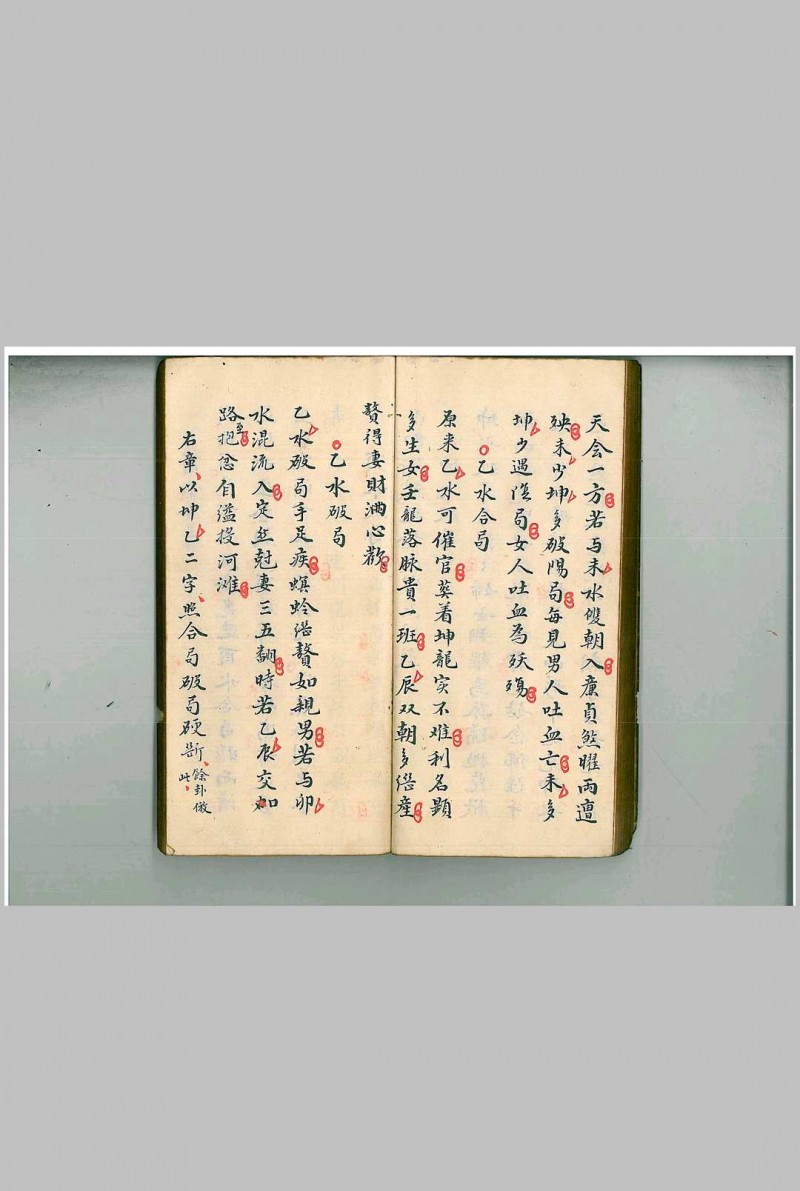 天会一方若与未水双朝入廉貞煞曜両遭
殃未少坤多破陽局每見男人吐血亡未多
坤少遇陰局女人吐血為殀殤
乙水合局
原来乙水可催官葬着坤龍实不难利名顕
多生女壬龍落脉貴一班乙辰双朝多絶産
贅得妻財満心歡
乙水破局
乙水破局手足疾螟蛉招贅如親男若与卯
水混流入定然尅妻三五翻時若乙辰交如
路抱忿自溢投河灘
右章以坤乙二字照合局破局硬斷餘卦倣
此